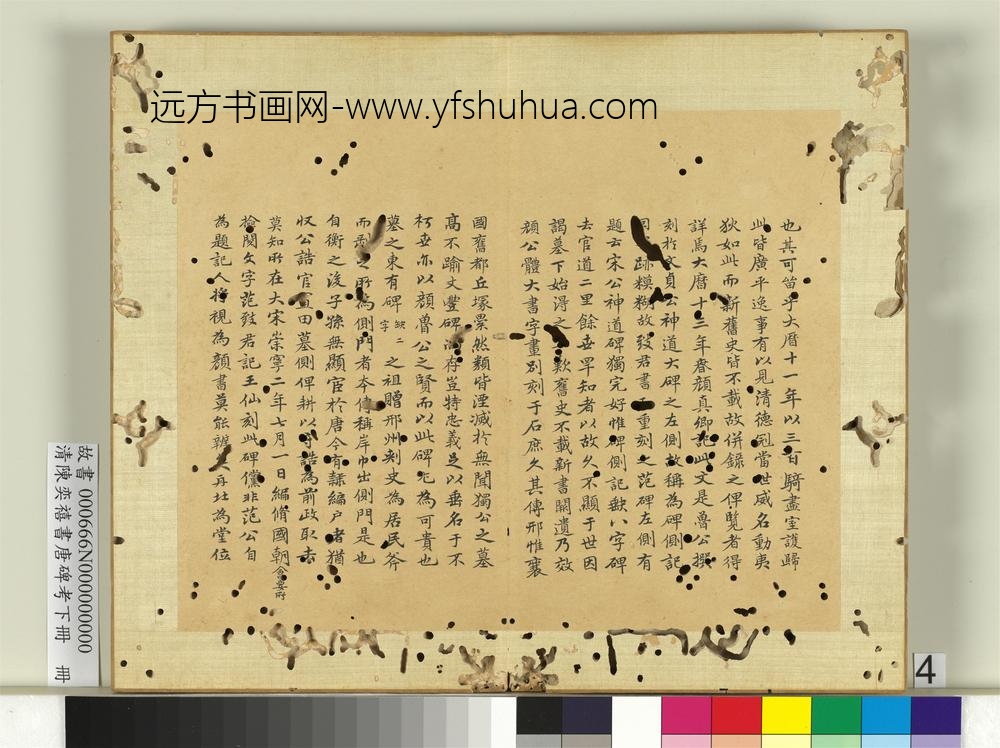 远方书画网-www.yfshuhua.com
也其可笛乎大曆十一年以三百騎盡室護歸
此皆廣平逸事有以見清德到當世威名動夷
狄如此而新舊史皆不載故併錄之俾覽者得
詳焉大曆十三年春顔真卿記此文是魯公撰
刻於文貞公神道大碑之左側故稱為碑側記
跡模糊故致君書重刻之范碑左側有
題云宋公神道碑獨完好惟碑側記缺八字碑
去官道二里餘世罕知者以故久不顯于世因
謁墓下始得之歎舊史不載新書闕遺乃效
顔公體大書字畫别刻于石庶久其傳邢惟襄
國舊都丘塚纍然類皆湮滅於無聞獨公之墓
高不踰丈豐碑存豈特忠義足以垂名于不
朽世亦以顔魯公之賢而以此碑尤為可貴也
墓之東有碑缺二字之祖贈邢州刺史為居民斧
而之所為側門者本傳稱岸巾出側門是也
自衡之後子孫無顯官於唐今有隸編户者猶
収公誥官田墓側俾耕以守誥為前政取去
莫知所在大宋崇寧二年七月一日編脩國朝會要所
檢閱文字范致君記王仙刻此碑儻非范公自
為題記人將視為顔書莫能辨矣再北為堂位
故書 000666N000000000
清陳奕禧書唐碑考下冊 冊
4